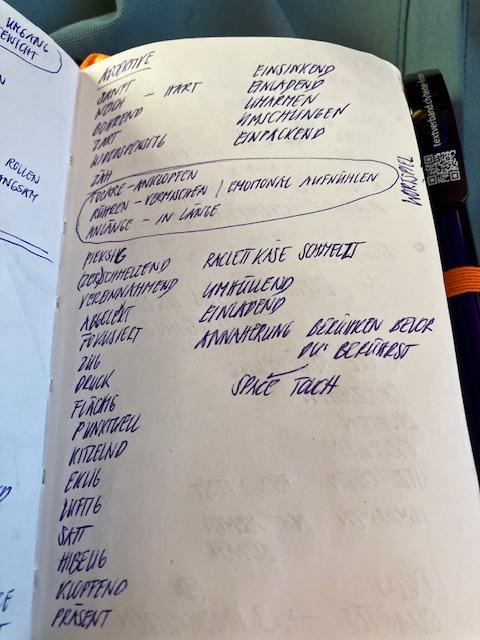 UMGANG
GEWICHT
ROLLEN
ADJEKTIVE
SANFT
WEICH - HART
BOHREND
ZART
WIDERSPENSTIG
ZÄH
EINSINKEND
EINLADEND
UMARMEN
UMSCHLINGEN
EINPACKEND
TOCARE - ANKLOPFEN
RÜHREN - VERMISCHEN / EMOTIONAL AUFWÜHLEN
ANLANGE - IN LÄNGE
WORTSPIEL
PIEKSIG
(ZER)SCHMELZEND
VEREINNAHMEND
ABGELENKT
FOKUSSIERT
ZUG
DRUCK
FLÄCHIG
PUNKTUELL
KITZELND
EKLIG
LUFTIG
SATT
HIBELIG
KLOPFEND
PRÄSENT
RACLETTKÄSE SCHMELZT
UMHÜLLEND
EINLADEND
ANNÄHERUNG BERÜHREN BEVOR
DU BERÜHRST
SPACE TOUCH